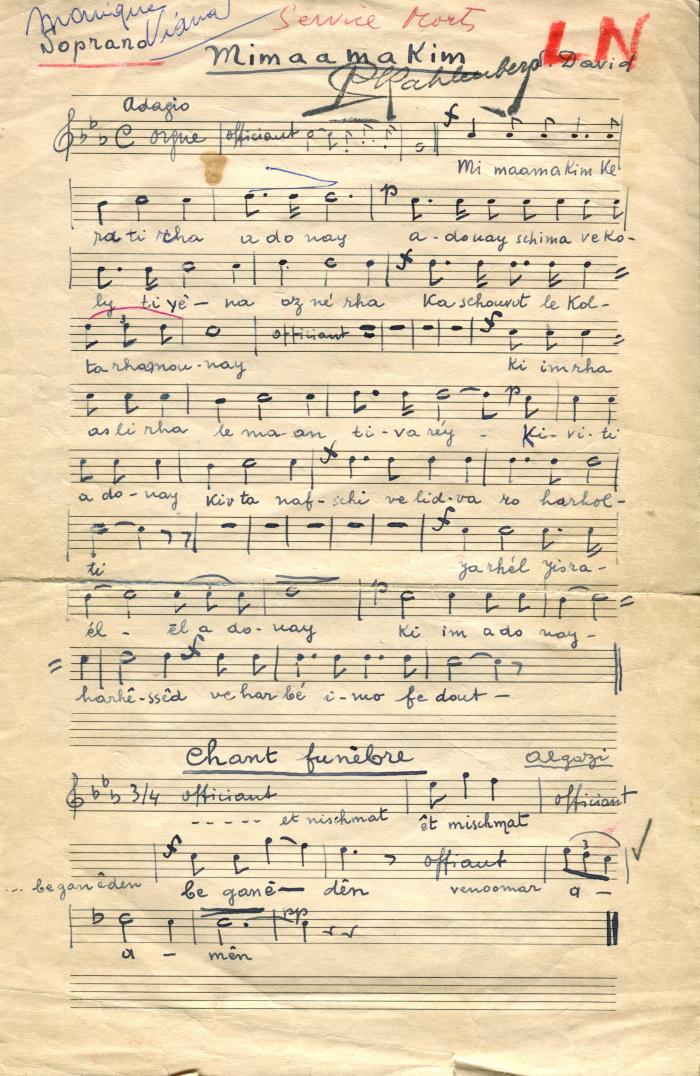 Monique Viana
Service Morts
LN
Soprano
Mimaamakim
P. Kahlenberg. David
Adagio
C orgue officiant
f
Mi maamakim Ke
p
ra ti rha a do nay a - donay schima ve Ko -
f
ly ti yê - na oz né rha Ka schouvot le Kol -
3
officiant
f
ta rhanou - nay Ki im rha
p
as li rha le ma - an ti - va réy - Ki - vi - ti
f
a do - nay Kiv ta naf - schi ve lid - va ro harhol -
f
ti ya rhél yisra -
p
él - él a do - nay Ki im a do nay -
f
harhê - ssêd ve har bé i - mo fe dout -
Chant funèbre Algazi
3/4 officiant officiant
- - - - - et nischmat êt mischmat
f
offiant
3
... be ganêden be ganê - dên venoomar a -
pp
a - mên